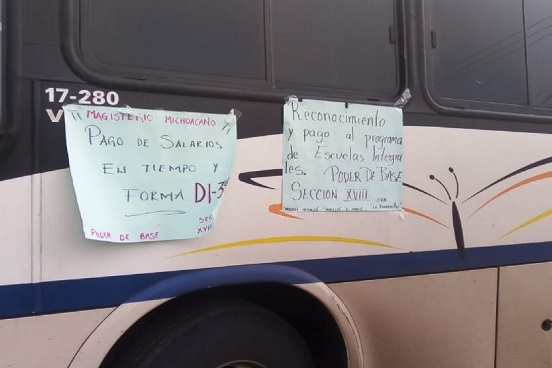 17-280
V
"MAGISTERIO MICHOACANO"
PAGO DE SALARIOS
EN TIEMPO Y
FORMA DI-3
SEC
XVIII
PODER DE BASE
Reconocimiento
y pago al programa
de Escuelas Integra
les. PODER DE BASE
SECCION XVIII